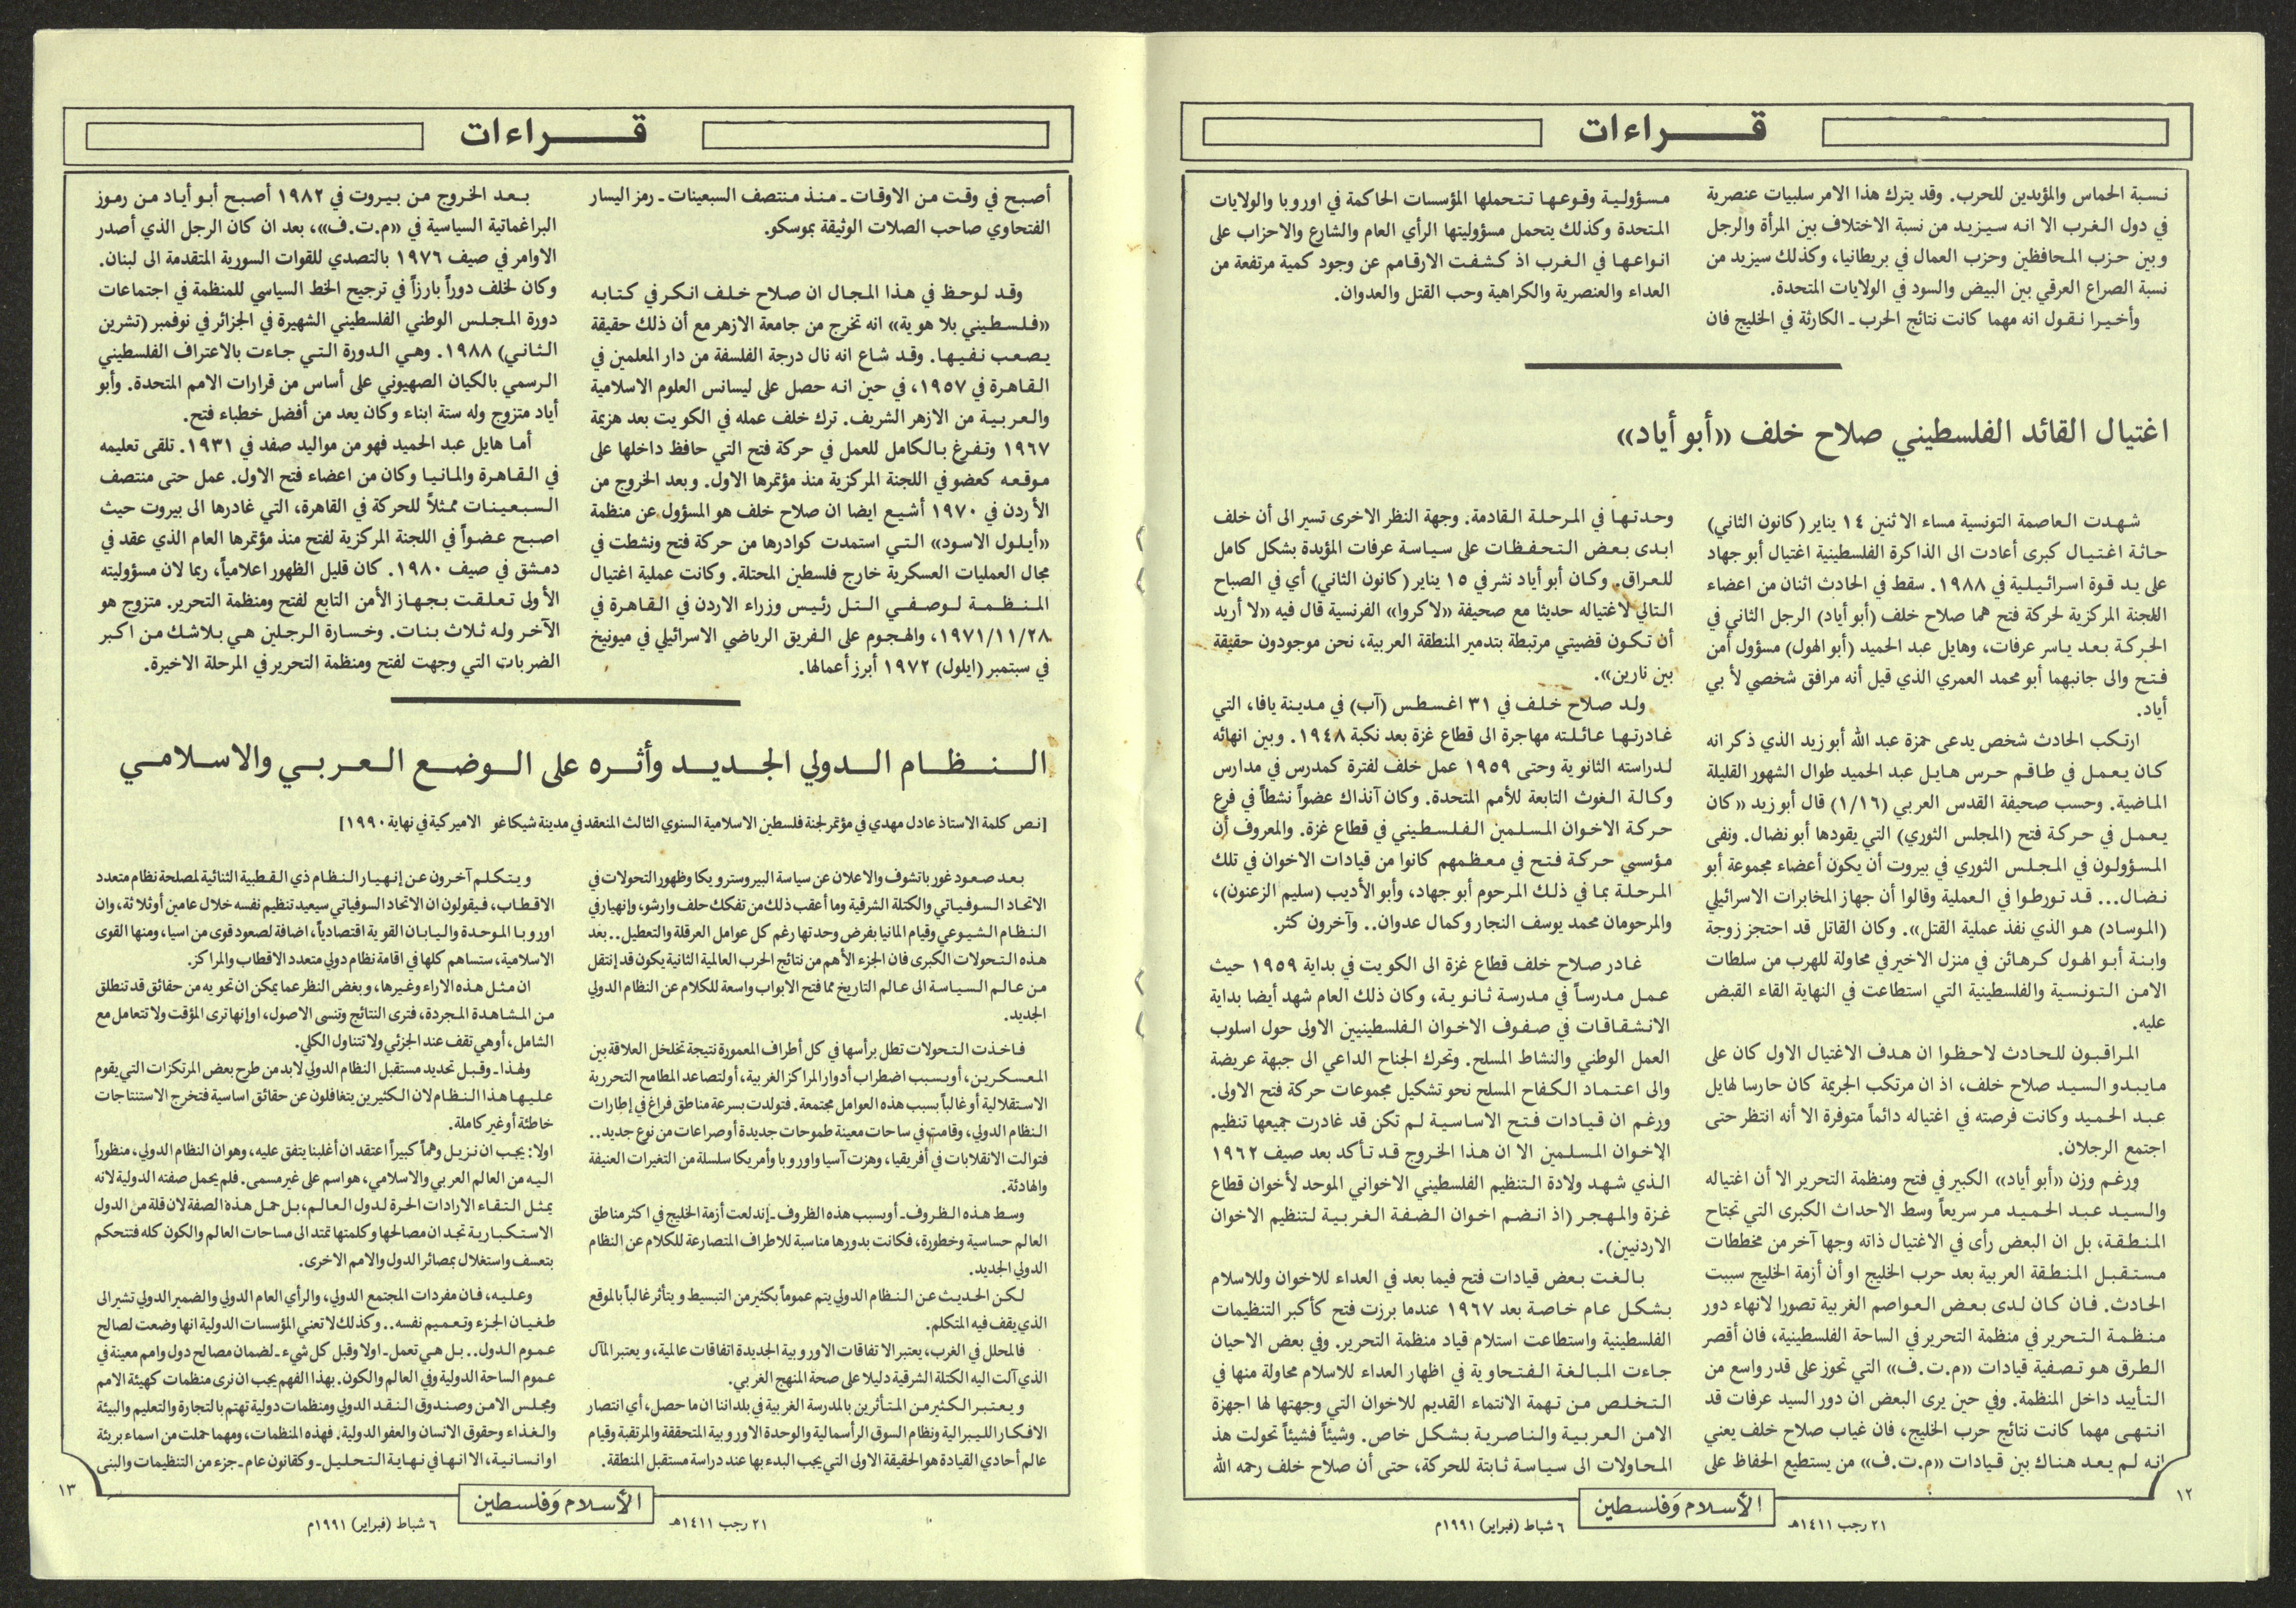 قـــراءات
نسبة الحماس والمؤيدين للحرب. وقد يترك هذا الامر سلبيات عنصرية
في دول الغرب الا انه سيزيد من نسبة الاختلاف بين المرأة والرجل
وبين حزب المحافظين وحزب العمال في بريطانيا، وكذلك سيزيد من
نسبة الصراع العرقي بين البيض والسود في الولايات المتحدة.
وأخيرا نقول انه مهما كانت نتائج الحرب ـ الكارثة في الخليج فان
مسؤولية وقوعها تتحملها المؤسسات الحاكمة في اوروبا والولايات
المتحدة وكذلك يتحمل مسؤوليتها الرأي العام والشارع والاحزاب على
انواعها في الغرب اذ كشفت الارقامم عن وجود كمية مرتفعة من
العداء والعنصرية والكراهية وحب القتل والعدوان.
اغتيال القائد الفلسطيني صلاح خلف «أبو أياد»
شهدت العاصمة التونسية مساء الاثنين ١٤ يناير (كانون الثاني)
حاثة اغتيال كبرى أعادت الى الذاكرة الفلسطينية اغتيال أبو جهاد
على يد قوة اسرائيلية في ١٩٨٨. سقط في الحادث اثنان من اعضاء
اللجنة المركزية لحركة فتح هما صلاح خلف (أبو أياد) الرجل الثاني في
الحركة بعد ياسر عرفات، وهايل عبد الحميد (أبو الهول) مسؤول أمن
فتح والى جانبهما أبو محمد العمري الذي قيل أنه مرافق شخصي لأبي
أياد.
ارتكب الحادث شخص يدعى حمزة عبد الله أبو زيد الذي ذكر انه
كان يعمل في طاقم حرس هايل عبد الحميد طوال الشهور القليلة
الماضية. وحسب صحيفة القدس العربي (١/١٦) قال أبو زيد «كان
يعمل في حركة فتح (المجلس الثوري) التي يقودها أبو نضال. ونفى
المسؤولون في المجلس الثوري في بيروت أن يكون أعضاء مجموعة أبو
نضال... قد تورطوا في العملية وقالوا أن جهاز المخابرات الاسرائيلي
(الموساد) هو الذي نفذ عملية القتل». وكان القاتل قد احتجز زوجة
وابنة أبو الهول كرهائن في منزل الاخير في محاولة للهرب من سلطات
الامن التونسية والفلسطينية التي استطاعت في النهاية القاء القبض
عليه.
المراقبون للحادث لاحظوا ان هدف الاغتيال الاول كان على
مايبدو السيد صلاح خلف، اذ ان مرتكب الجريمة كان حارسا لهايل
عبد الحميد وكانت فرصته في اغتياله دائماً متوفرة الا أنه انتظر حتى
اجتمع الرجلان.
ورغم وزن «أبو أياد» الكبير في فتح ومنظمة التحرير الا أن اغتياله
والسيد عبد الحميد مر سريعاً وسط الاحداث الكبرى التي تجتاح
المنطقة، بل ان البعض رأى في الاغتيال ذاته وجها آخر من مخططات
مستقبل المنطقة العربية بعد حرب الخليج او أن أزمة الخليج سببت
الحادث. فان كان لدى بعض العواصم الغربية تصورا لانهاء دور
منظمة التحرير في منظمة التحرير في الساحة الفلسطينية، فان أقصر
الطرق هو تصفية قيادات «م.ت.ف» التي تحوز على قدر واسع من
التأييد داخل المنظمة. وفي حين يرى البعض ان دور السيد عرفات قد
انتهى مهما كانت نتائج حرب الخليج، فان غياب صلاح خلف يعني
انه لم يعد هناك بين قيادات «م.ت.ف» من يستطيع الحفاظ على
وحدتها في المرحلة القادمة. وجهة النظر الاخرى تسير الى أن خلف
ابدى بعض التحفظات على سياسة عرفات المؤيدة بشكل كامل
للعراق. وكان أبو أياد نشر في ١٥ يناير (كانون الثاني) أي في الصباح
التالي لاغتياله حديثا مع صحيفة «لاكروا» الفرنسية قال فيه «لا أريد
أن تكون قضيتي مرتبطة بتدمير المنطقة العربية، نحن موجودون حقيقة
بين نارين».
ولد صلاح خلف في ٣١ اغسطس (آب) في مدينة يافا، التي
غادرتها عائلته مهاجرة الى قطاع غزة بعد نكبة ١٩٤٨. وبين انهائه
لدراسته الثانوية وحتى ١٩٥٩ عمل خلف لفترة كمدرس في مدارس
وكالة الغوث التابعة للأمم المتحدة. وكان آنذاك عضواً نشطاً في فرع
حركة الاخوان المسلمين الفلسطيني في قطاع غزة. والمعروف أن
مؤسسي حركة فتح في معظمهم كانوا من قيادات الاخوان في تلك
المرحلة بما في ذلك المرحوم أبو جهاد، وأبو الأديب (سليم الزعنون)،
والمرحومان محمد يوسف النجار وكمال عدوان.. وآخرون كثر.
غادر صلاح خلف قطاع غزة الى الكويت في بداية ١٩٥٩ حيث
عمل مدرساً في مدرسة ثانوية، وكان ذلك العام شهد أيضا بداية
الانشقاقات في صفوف الاخوان الفلسطينيين الاولى حول اسلوب
العمل الوطني والنشاط المسلح. وتحرك الجناح الداعي الى جبهة عريضة
والى اعتماد الكفاح المسلح نحو تشكيل مجموعات حركة فتح الاولى.
ورغم ان قيادات فتح الاساسية لم تكن قد غادرت جميعها تنظيم
الإخوان المسلمين الا ان هذا الخروج قد تأكد بعد صيف ١٩٦٢
الذي شهد ولادة التنظيم الفلسطيني الاخواني الموحد لأخوان قطاع
غزة والمهجر (اذ انضم اخوان الضفة الغربية لتنظيم الاخوان
الاردنيين).
بالغت بعض قيادات فتح فيما بعد في العداء للاخوان وللاسلام
بشكل عام خاصة بعد ١٩٦٧ عندما برزت فتح كأكبر التنظيمات
الفلسطينية واستطاعت استلام قياد منظمة التحرير. وفي بعض الاحيان
جاءت المبالغة الفتحاوية في اظهار العداء للاسلام محاولة منها في
التخلص من تهمة الانتماء القديم للاخوان التي وجهتها لها اجهزة
الامن العربية والناصرية بشكل خاص. وشيئاً فشيئاً تحولت هذ
المحاولات الى سياسة ثابتة للحركة، حتى أن صلاح خلف رحمه الله
١٢
الأسلام وَفلسطين
٢١ رجب ١٤١١هـ
٦ شباط (فبراير) ١٩٩١م
قـــراءات
أصبح في وقت من الاوقات ـ منذ منتصف السبعينات ـ رمز اليسار
الفتحاوي صاحب الصلات الوثيقة بموسكو.
وقد لوحظ في هذا المجال ان صلاح خلف انكر في كتابه
«فلسطيني بلا هوية» انه تخرج من جامعة الازهر مع أن ذلك حقيقة
يصعب نفيها. وقد شاع انه نال درجة الفلسفة من دار المعلمين في
القاهرة في ١٩٥٧، في حين انه حصل على ليسانس العلوم الاسلامية
والعربية من الازهر الشريف. ترك خلف عمله في الكويت بعد هزيمة
١٩٦٧ وتفرغ بالكامل للعمل في حركة فتح التي حافظ داخلها على
موقعه كعضو في اللجنة المركزية منذ مؤتمرها الاول. وبعد الخروج من
الأردن في ١٩٧٠ أشيع ايضا ان صلاح خلف هو المسؤول عن منظمة
«أيلول الاسود» التي استمدت كوادرها من حركة فتح ونشطت في
مجال العمليات العسكرية خارج فلسطين المحتلة. وكانت عملية اغتيال
المنظمة لوصفي التل رئيس وزراء الاردن في القاهرة في
١٩٧١/١١/٢٨، والهجوم على الفريق الرياضي الاسرائيلي في ميونيخ
في سبتمبر (ايلول) ١٩٧٢ أبرز أعمالها.
بعد الخروج من بيروت في ١٩٨٢ أصبح أبو أياد من رموز
البراغماتية السياسية في «م.ت.ف»، بعد ان كان الرجل الذي أصدر
الاوامر في صيف ١٩٧٦ بالتصدي للقوات السورية المتقدمة الى لبنان.
وكان لخلف دوراً بارزاً في ترجيح الخط السياسي للمنظمة في اجتماعات
دورة المجلس الوطني الفلسطيني الشهيرة في الجزائر في نوفمبر (تشرين
الثاني) ١٩٨٨. وهي الدورة التي جاءت بالاعتراف الفلسطيني
الرسمي بالكيان الصهيوني على أساس من قرارات الامم المتحدة. وأبو
أياد متزوج وله ستة ابناء وكان يعد من أفضل خطباء فتح.
أما هايل عبد الحميد فهو من مواليد صفد في ١٩٣١. تلقى تعليمه
في القاهرة والمانيا وكان من اعضاء فتح الاول. عمل حتى منتصف
السبعينات ممثلاً للحركة في القاهرة، التي غادرها الى بيروت حيث
اصبح عضواً في اللجنة المركزية لفتح منذ مؤتمرها العام الذي عقد في
دمشق في صيف ١٩٨٠. كان قليل الظهور اعلامياً، ربما لان مسؤوليته
الأولى تعلقت بجهاز الأمن التابع لفتح ومنظمة التحرير. متزوج هو
الآخر وله ثلاث بنات. وخسارة الرجلين هي بلاشك من اكبر
الضربات التي وجهت لفتح ومنظمة التحرير في المرحلة الاخيرة.
النظام الدولي الجديد وأثره على الوضع العربي والاسلامي
[نص كلمة الاستاذ عادل مهدي في مؤتمر لجنة فلسطين الاسلامية السنوي الثالث المنعقد في مدينة شيكاغو الاميركية في نهاية ١٩٩٠]
بعد صعود غورباتشوف والاعلان عن سياسة البيروسترويكا وظهور التحولات في
الاتحاد السوفياتي والكتلة الشرقية وما أعقب ذلك من تفكك حلف وارشو، وإنهيار في
النظام الشيوعي وقيام المانيا بفرض وحدتها رغم كل عوامل العرقلة والتعطيل.. بعد
هذه التحولات الكبرى فان الجزء الأهم من نتائج الحرب العالمية الثانية يكون قد إنتقل
من عالم السياسة الى عالم التاريخ مما فتح الابواب واسعة للكلام عن النظام الدولي
الجديد.
فاخذت التحولات تطل برأسها في كل أطراف المعمورة نتيجة تخلخل العلاقة بين
المعسكرين، أو بسبب اضطراب أدوار المراكز الغربية، أو لتصاعد المطامح التحررية
الاستقلالية أو غالباً بسبب هذه العوامل مجتمعة. فتولدت بسرعة مناطق فراغ في إطارات
النظام الدولي، وقامت في ساحات معينة طموحات جديدة أو صراعات من نوع جديد..
فتوالت الانقلابات في أفريقيا، وهزت آسيا واوروبا وأمريكا سلسلة من التغيرات العنيفة
والهادئة.
وسط هذه الظروف ـ أو بسبب هذه الظروف ـ إندلعت أزمة الخليج في اكثر مناطق
العالم حساسية وخطورة، فكانت بدورها مناسبة للاطراف المتصارعة للكلام عن النظام
الدولي الجديد.
لكن الحديث عن النظام الدولي يتم عموماً بكثير من التبسيط ويتأثر غالباً بالموقع
الذي يقف فيه المتكلم.
فالمحلل في الغرب، يعتبر الاتفاقات الاوروبية الجديدة اتفاقات عالمية، ويعتبر المآل
الذي آلت اليه الكتلة الشرقية دليلا على صحة المنهج الغربي.
ويعتبر الكثير من المتأثرين بالمدرسة الغربية في بلداننا ان ما حصل، أي انتصار
الافكار الليبرالية ونظام السوق الرأسمالية والوحدة الاوروبية المتحققة والمرتقبة وقيام
عالم أحادي القيادة هو الحقيقة الاولى التي يجب البدء بها عند دراسة مستقبل المنطقة.
ويتكلم آخرون عن إنهيار النظام ذي القطبية الثنائية لمصلحة نظام متعدد
الاقطاب، فيقولون ان الاتحاد السوفياتي سيعيد تنظيم نفسه خلال عامين أو ثلاثة، وان
اوروبا الموحدة واليابان القوية اقتصادياً، اضافة لصعود قوى من اسيا، ومنها القوى
الاسلامية، ستساهم كلها في اقامة نظام دولي متعدد الاقطاب والمراكز.
ان مثل هذه الاراء وغيرها، وبغض النظر عما يمكن ان تحويه من حقائق قد تنطلق
من المشاهدة المجردة، فترى النتائج وتنسى الاصول، او إنها ترى المؤقت ولا تتعامل مع
الشامل، أو هي تقف عند الجزئي ولا تتناول الكلي.
ولهذا ـ وقبل تحديد مستقبل النظام الدولي لابد من طرح بعض المرتكزات التي يقوم
عليها هذا النظام لان الكثيرين يتغافلون عن حقائق اساسية فتخرج الاستنتاجات
خاطئة أو غير كاملة.
اولا: يجب ان نزيل وهماً كبيراً اعتقد ان أغلبنا يتفق عليه، وهو ان النظام الدولي، منظوراً
اليه من العالم العربي والاسلامي، هو اسم على غير مسمى. فلم يحمل صفته الدولية لانه
يمثل التقاء الارادات الحرة لدول العالم، بل حمل هذه الصفة لان قلة من الدول
الاستكبارية تجد ان مصالحها وكلمتها تمتد الى مساحات العالم والكون كله فتتحكم
بتعسف واستغلال بمصائر الدول والامم الاخرى.
وعليه، فان مفردات المجتمع الدولي، والرأي العام الدولي والضمير الدولي تشير الى
طغيان الجزء وتعميم نفسه.. وكذلك لا تعني المؤسسات الدولية انها وضعت لصالح
عموم الدول.. بل هي تعمل ـ اولا وقبل كل شيء ـ لضمان مصالح دول وامم معينة في
عموم الساحة الدولية وفي العالم والكون. بهذا الفهم يجب ان نرى منظمات كهيئة الامم
ومجلس الامن وصندوق النقد الدولي ومنظمات دولية تهتم بالتجارة والتعليم والبيئة
والغذاء وحقوق الانسان والعفو الدولية. فهذه المنظمات، ومهما حملت من اسماء بريئة
او انسانية، الا انها في نهاية التحليل ـ وكقانون عام ـ جزء من التنظيمات والبنى
١٣
الأسلام وَفلسطين
٢١ رجب ١٤١١هـ
٦ شباط (فبراير) ١٩٩١م